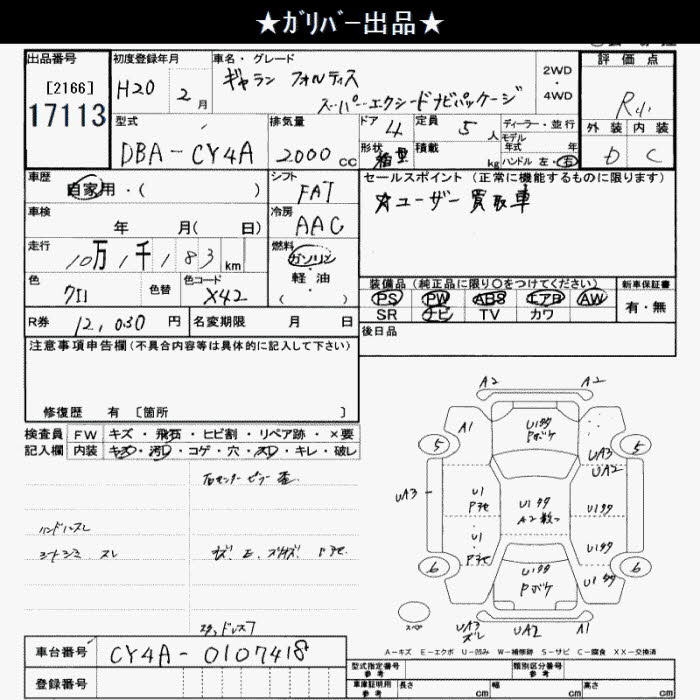 ★ｶﾞﾘﾊﾞｰ出品★
出品番号
[2166]
17113
初度登録年月
H20 2月
車名・グレード
ギャラン フォルティス
スーパーエクシードナビパッケージ
2WD
・
4WD
評価点
外装 内装
D C
型式
DBA-CY4A
排気量
2000cc
ドア 4
定員 5人
形状 箱型
積載 kg
ディーラー・並行
モデル年式 年
ハンドル 左・右
車歴
自家用・( )
シフト
FAT
車検
年 月( 日)
冷房
AAC
走行
10万1千183km
燃料
ガソリン
・
軽油
( )
色
色替
色コード
X42
セールスポイント (正常に機能するものに限ります)
☆ユーザー買取車
装備品(純正品に限り○をつけてください)
PS PW ABS エアB AW
SR ナビ TV カワ
新車保証書
有・無
R券 12,030円
名変期限 月 日
後日品
注意事項申告欄(不具合内容等は具体的に記入して下さい)
修復歴 有 [箇所 ]
検査員記入欄
FW キズ・飛石・ヒビ割・リペア跡・×要
内装 キズ・汚レ・コゲ・穴・スレ・キレ・破レ
ハンドルスレ
シートシミ スレ
A2 A2
A1
U1タタ
Pボケ
UA3
UA2
5 5
UA3
U1
U1タタ
A2数つ
U1タタ
U1
U1タタ
6 6
U1タタ
Pボケ
U1タタ
スペア
UA3
スレ
UA2
A1
A－キズ E－エクボ U－凹み W－補修跡 S－サビ C－腐食 XX－交換済
車台番号 CY4A-0107418
登録番号
型式指定番号
参考
類別区分番号
参考
車庫証明用
参考
長さ cm
幅 cm
高さ cm